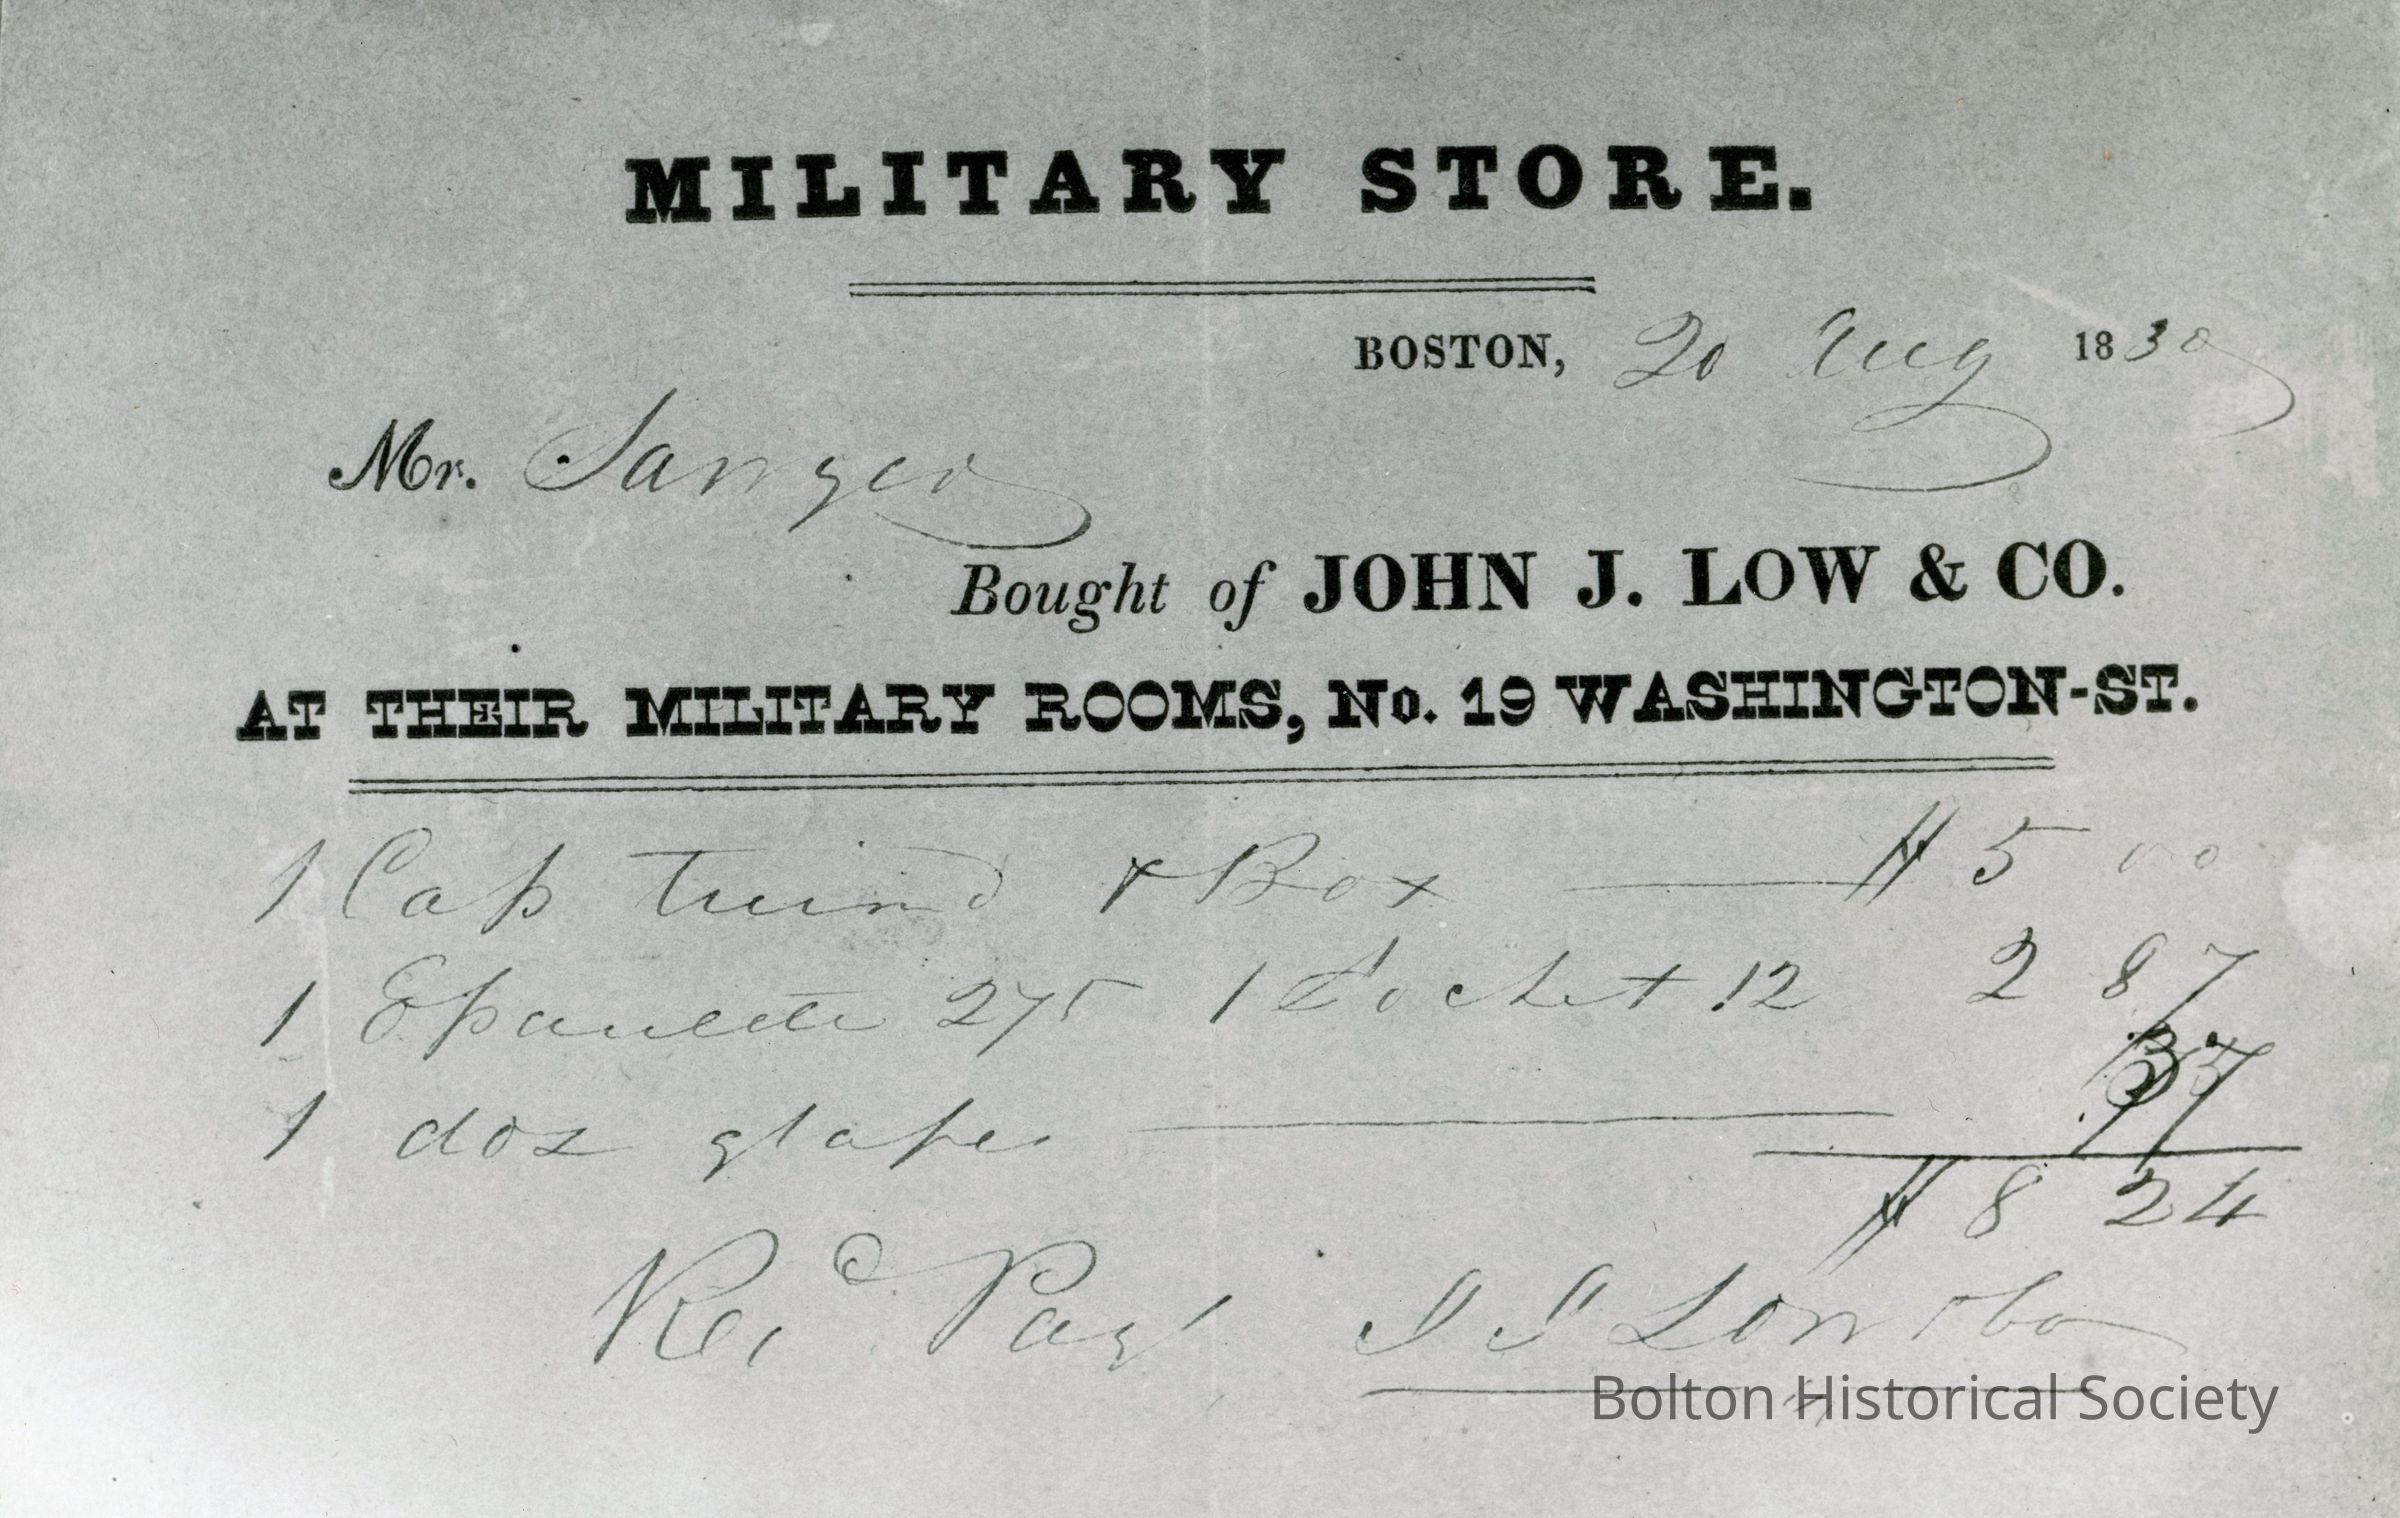 MILITARY STORE.
BOSTON, 20 Aug 1830
Mr. Sawyer
Bought of JOHN J. LOW & CO.
AT THEIR MILITARY ROOMS, No. 19 WASHINGTON-ST.
1 Cap trim'd & Box $ 5 00
1 Epaulette 275 1 Socket .12 2 87
37
1 doz
$ 8 24
Recd Payt J J Low & Co
Bolton Historical Society